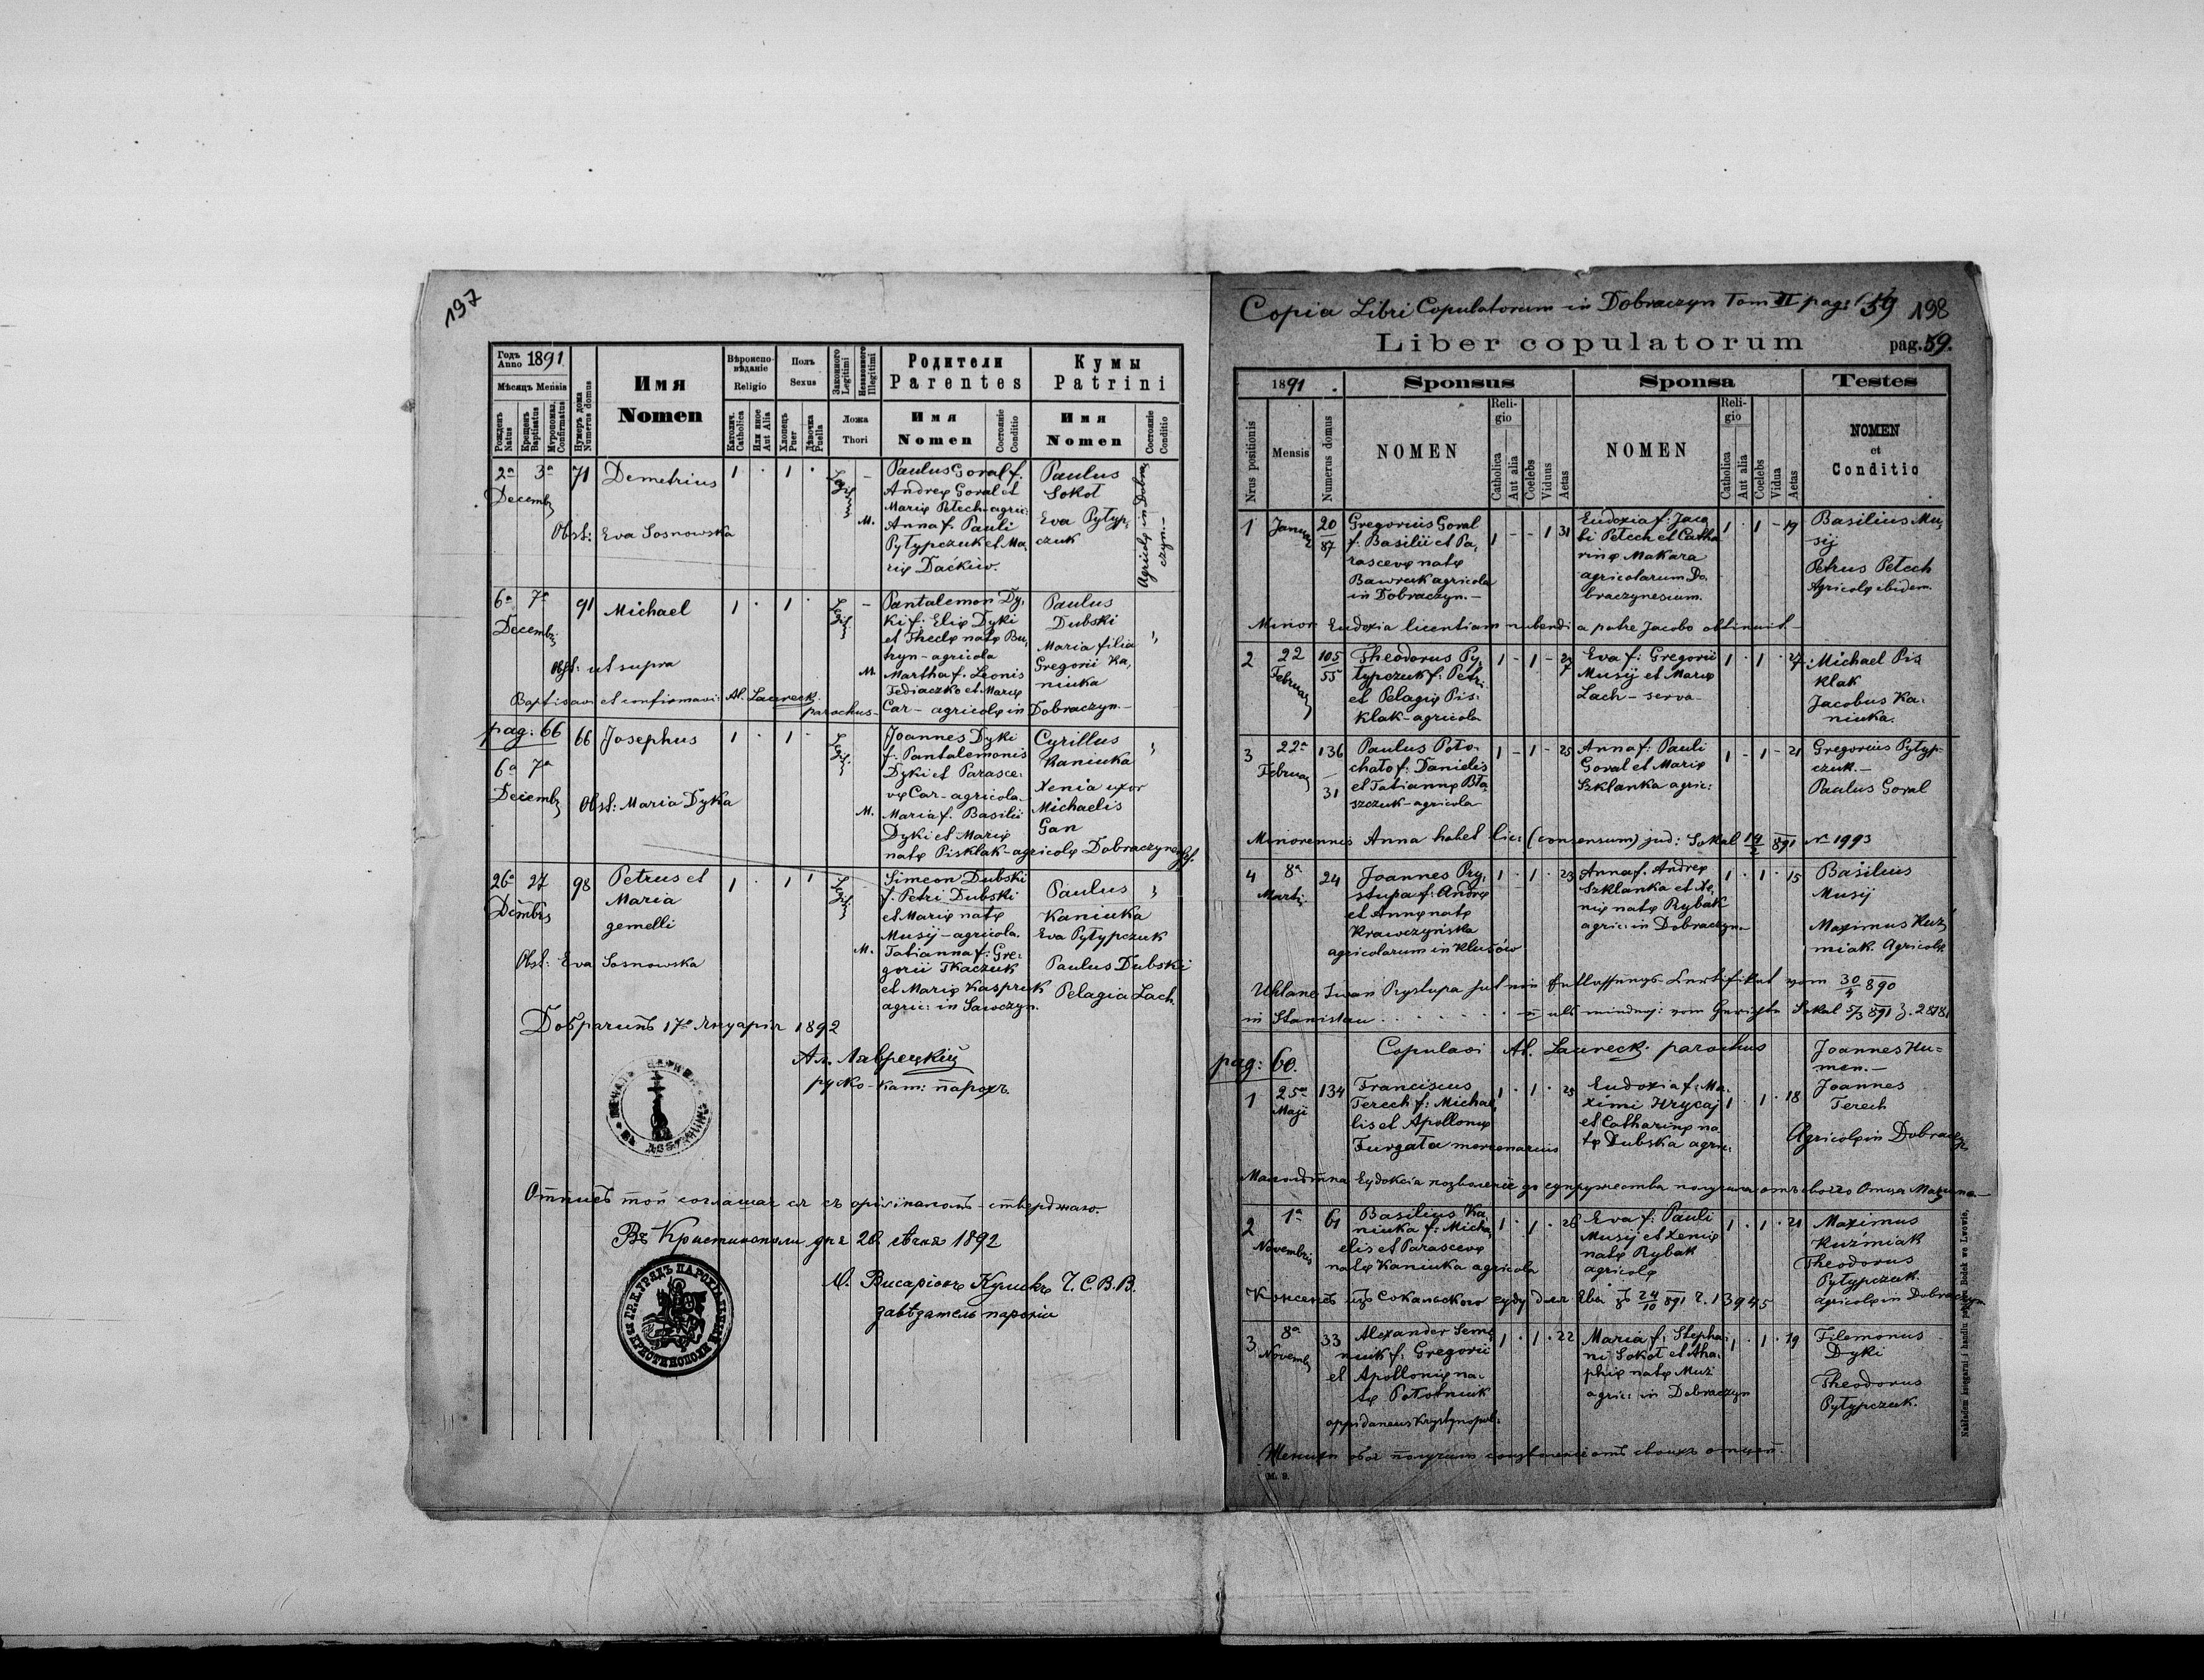 197
Годъ Anno 1891
Мѣсяцъ Mensis
Рожденъ Natus
Крещенъ Baptisatus
Мѵропомаз. Confirmatus
Нумеръ дома Numerus domus
Имя
Nomen
Вѣроиспо-
вѣданіе
Religio
Католич. Catholica
Или иное Aut Alia
Полъ
Sexus
Хлопець Puer
Дѣвочка Puella
Законного Legitimi
Незаконного Illegitimi
Ложа
Thori
Родители
Parentes
Имя
Nomen
Состояніе Conditio
Кумы
Patrini
Имя
Nomen
Состояніе Conditio
2a 3a 71 Demetrius 1 . 1 .
Decemb
Obst: Eva Sosnowska
Paulus Goral f.
Andreę Goral et
Marię Petech - agri:
M. Anna f. Pauli
Pytypczuk et Ma,
rię Daćkiw.
Paulus
Sokoł
Eva Pytyp,
czuk
Agricolę in Dobra,
czyn.-
6a 7a 91 Michael 1 . 1 .
Decemb
Obst: ut supra
Pantalemon Dy,
ki f: Elię Dyki
et Theclę natę Bu,
tryn - agricola
M. Martha f. Leonis
Fediaczko et Marię
Car - agricolę in Dobraczyn.-
Paulus
Dubski
Maria filia
Gregorii Ka,
niuka
Baptisavi et confirmavi: Al. Laureck
parochus-
pag: 66
66 Josephus 1 . 1 .
6a 7a
Decemb
Obst: Maria Dyka
Joannes Dyki
f. Pantalemonis
Dyki et Parasce,
vę Car - agricola.
M. Maria f. Basilii
Dyki et Marię
natę Pisklak - agricolę Dobraczyn
Cyrillus
Kaniuka
Xenia uxor
Michaelis
Gan
26a 27 98 Petrus et 1 . 1 1
Dembris Maria
gemelli
Obst: Eva Sosnowska
Simeon Dubski
f. Petri Dubski
et Marię natę
Musij - agricola.
M. Tatianna f: Gre,
gorii Tkaczuk
et Marię Kaspruk
agric: in Sawczyn.
Paulus
Kaniuka
Eva Pytypczuk
Paulus Dubski
Pelagia Lach
Добрачинъ 17го Януарія 1892
Ал. Лаврецкій
руско-кат: парохъ.
Отписъ той соглашає ся съ оригіналомъ - стверджаю.
Въ Кристинополи дня 28 сѣчня 1892
Висаріонъ Ч.С.В.В.
завѣдатель парохіи
Copia Libri Copulatorum in Dobraczyn Tom II pag: 59 198
Liber copulatorum pag. 59.
1891.
Sponsus
Sponsa
Testes
Nrus positionis
Mensis
Numerus domus
NOMEN
Reli-
gio
Catholica
Aut alia
Coelebs
Viduus
Aetas
NOMEN
Reli-
gio
Catholica
Aut alia
Coelebs
Vidua
Aetas
NOMEN
et
Conditio
1 Januar 20/87
Gregorius Goral
f. Basilii et Pa,
rascevę natę
Bawrak agricola
in Dobraczyn.-
1 - - 1 31
Eudoxia f: Jaco
bi Petech et Catha
rinę Makara
agricolarum Do,
braczynesium.
1 . 1 - 19
Basilius Mu,
sij
Petrus Petech
Agricolę ibidem.
Minor Eudoxia licentiam nubendi a patre Jacobo obtinuit-
2 22 Februar 105/55
Theodorus Py,
typczuk f: Petri
et Pelagię Pis,
klak - agricola
1 - 1 - 27
Eva f: Gregorii
Musij et Marię
Lach - serva-
1 . 1 . 27
Michael Pis
klak
Jacobus Ka,
niuka.
3 22a Februar 136 - 31
Paulus Poto-
chato f: Danielis
et Tatiannę Bła,
szczuk - agricola
1 - 1 - 25
Anna f: Pauli
Goral et Marię
Szklanka agric:
1 - 1 - 21
Gregorius Pytyp-
czuk.-
Paulus Goral
Minorennis Anna habet lic: (consensum) jud: Sokal 14/2 891 N 1993
4 8a Marti 24
Joannes Pry,
stupa f. Andreę
et Annę natę
Krawczyńska
agricolarum in Klusów
1 . 1 . 23
Anna f. Andreę
Szklanka et Xe,
nię natę Rybak
agric: in Dobraczyn
1 . 1 . 15
Basilius
Musij
Maximus Kuź
miak. Agricolę
Uhlane Iwan Prystupa hat ein Entlassungs-Certifikat vom 30/4 890
in Stanislau . . . . . . . . vom Gerichte Sokal 5/3 891 Z. 2878
Copulavi Al. Laureck. parochus
pag: 60.
1 25a Maji 134
Franciscus
Terech f: Michae,
lis et Apollonię
Furgata mercenarius
1 . 1 . 25
Eudoxia f: Ma,
ximi Hrycaj
et Catharinę na,
tę Dubska agric:
1 . 1 . 18
Joannes Hu=
men.-
Joannes
Terech
Agricolę in Dobraczyn
Малолѣтна Еудоксія позволенїє до супружества получила отъ своєго Отця Максима-
2 1a Novembris 61
Basilius Ka,
niuka f: Micha,
elis et Parascevę
natę Kaniuka agricola
1 . 1 . 26
Eva f: Pauli
Musij et Xenię
natę Rybak
agricolę
1 . 1 . 21
Maximus
Kuźmiak
Theodorus
Pytypczuk.
agricolę in Dobraczyn
Консенсъ изъ Сокальского суду для Еви зъ 24/10 891 Ч. 13945
3 8a Novemb 33
Alexander Seme,
niuk f: Gregorii
et Apollonię na,
tę Potolniuk
oppidaneus Krystynopol:
1 . 1 . 22
Maria f: Stepha,
ni Sokoł et Aha,
phię natę Muź
agric: in Dobraczyn
1 . 1 . 19
Filemonus
Dyki
Theodorus
Pytypczuk.
обоє получили соизволенїє отъ своихъ отцей.
M. S.